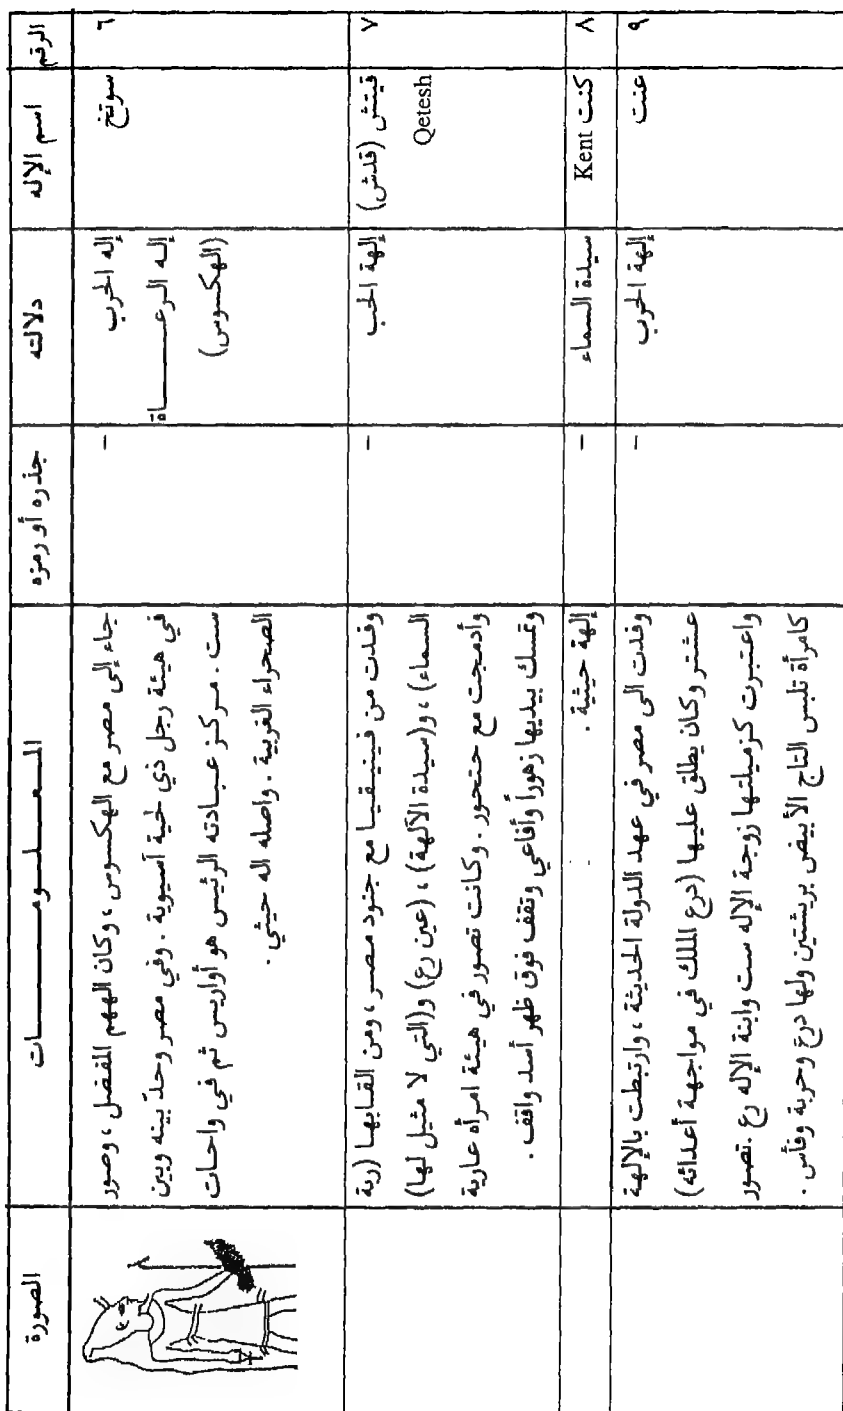 الرقم	اسم الإله	دلالته	جذره أو رمزه	المعلومات	الصورة
٦	سوتخ	إله الحرب	-	جاء إلى مصر مع الهكسوس، وكان الههم المفضل، وصور
إله الرعاة	في هيئة رجل ذي لحية آسيوية. وفي مصر وحدّ بينه وبين
(الهكسوس)	ست. مركز عبادته الرئيس هو أواريس ثم في واحات
الصحراء الغربية. واصله اله حيثي.
٧	قيتش (قدش)	إلهة الحب	-	وفدت من فينيقيا مع جنود مصر، ومن القابها (ربة
Qetesh	السماء)، و(سيدة الآلهة)، (عين رع) و(التي لا مثيل لها)
وأدمجت مع حتحور. وكانت تصور في هيئة امرأة عارية
وتمسك بيديها زهوراً وأفاعي وتقف فوق ظهر أسد واقف.
٨	كنت Kent	سيدة السماء	-	إلهة حيثية.
٩	عنت	إلهة الحرب	-	وفدت الى مصر في عهد الدولة الحديثة، وارتبطت بالإلهة
عشتر وكان يطلق عليها (درع الملك في مواجهة أعدائه)
واعتبرت كزميلتها زوجة الإله ست وابنة الإله رع. تصور
كامرأة تلبس التاج الأبيض بريشتين ولها درع وحربة وفأس.